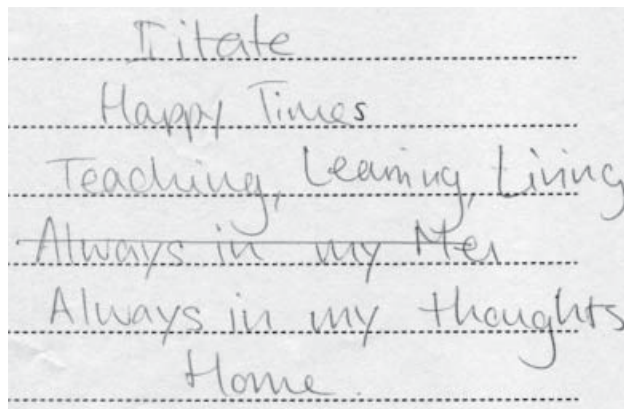 Iitate
Happy Times
Teaching, Learning, Living
Always in my Mer
Always in my thoughts
Home.